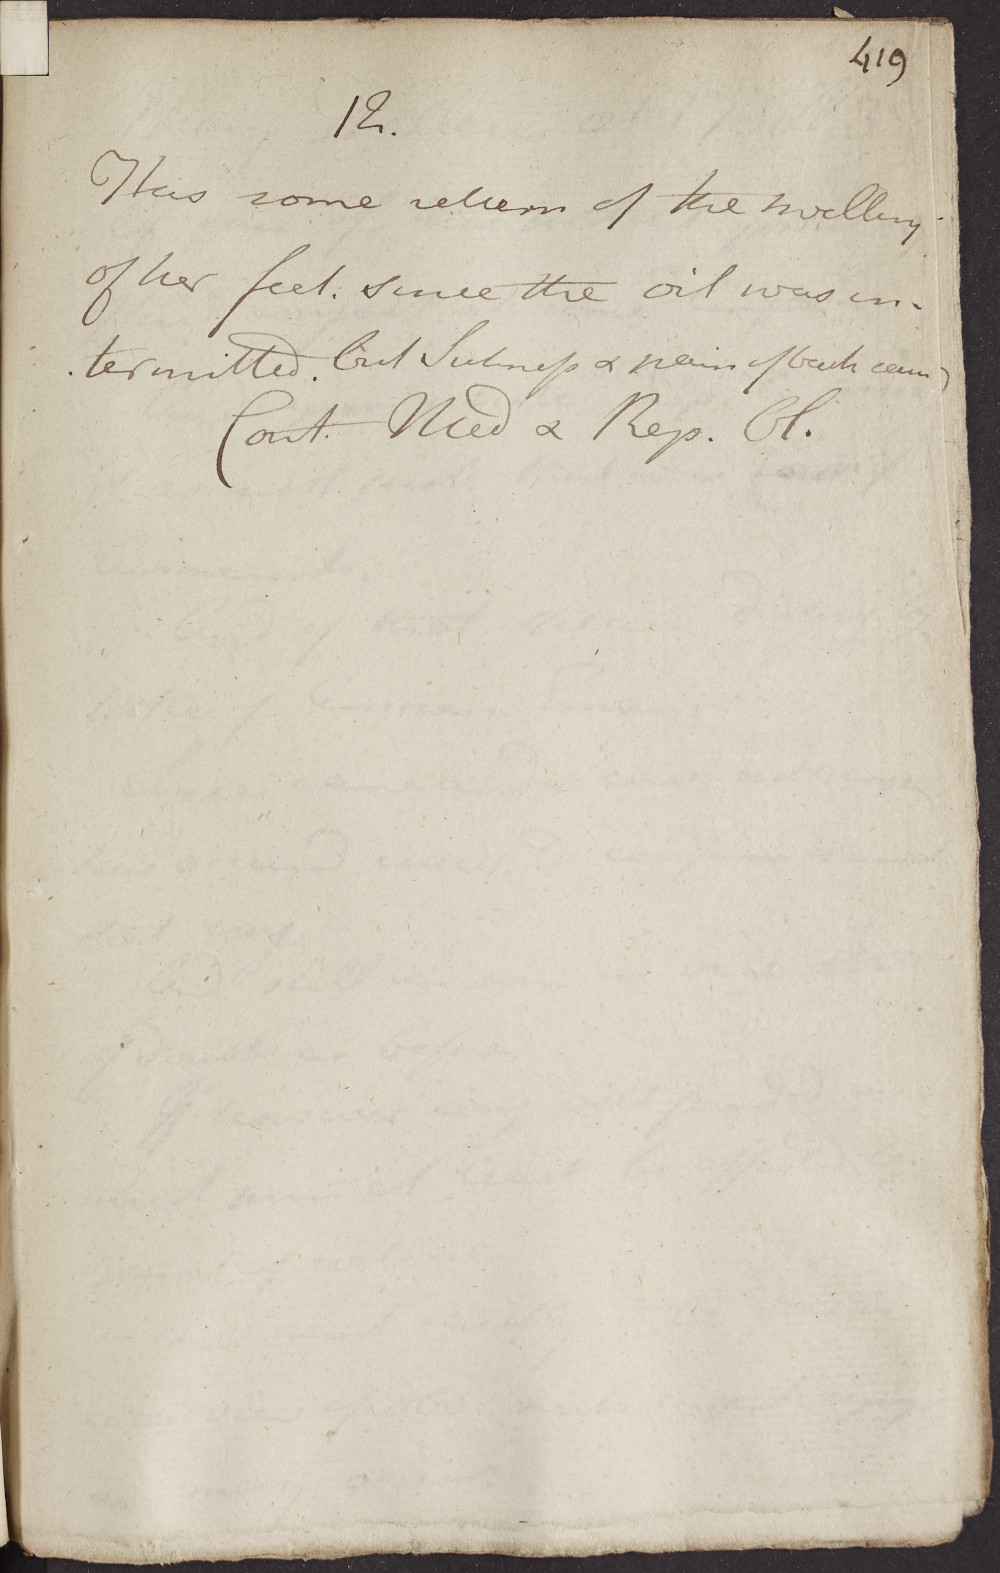 419
12.
Has some return of the swelling
of her feet. since the oil was in-
termitted. but Sickness & pain of back
Cont. Med & Rep. Ol.